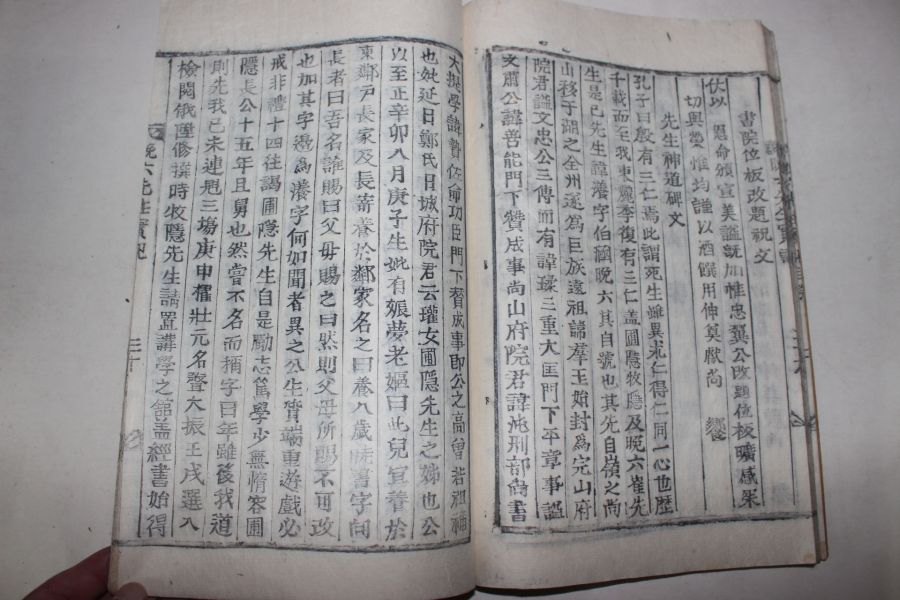 書院位板改題祝文
伏以 恩命頒宣美謚旣加惟忠翼公改題位板曠感采
切與榮惟均謹以酒饌用伸奠獻尚 饗
先生神道碑文
孔子曰殷有三仁焉此謂死生雖異求仁得仁同一心也歷
千載而至我東麗季復有三仁盖圃隱牧隱及晩六崔先
生是已先生諱瀁字伯涵晩六其自號也其先自嶺之尚
山移于湖之全州遂爲巨族遠祖諱羣玉始封爲完山府
院君謚文忠公三傳而有諱 三重大匡門下平章事謚
文肅公諱善能門下贊成事尚山府院君諱沲刑部尚書
大提學諱贅佐命功臣門下贊成事即公之高曾若祖
也妣延日鄭氏日城府院君云瓘女圃隱先生之姊也公
以至正辛卯八月庚子生妣有娠夢老嫗曰此兒宜養於
東鄰尹長家及長 養於鄰家名之曰養八歲 書字問
長者曰吾名誰賜曰父母賜之曰然則父母所賜不可改
也加其字邊爲瀁字何如聞者異之公生質端重遊戲必
戒非禮十四往謁圃隱先生自是勵志篤學少無惰容圃
隱長公十五年且舅也然嘗不名而稱字曰年雖後我道
則先我已未連魁三塲庚申擢壯元名聲大振壬戌選入
檢閱俄陞修撰時牧隱先生請置講學之舘盖經書始得
晩六先生實紀
三十